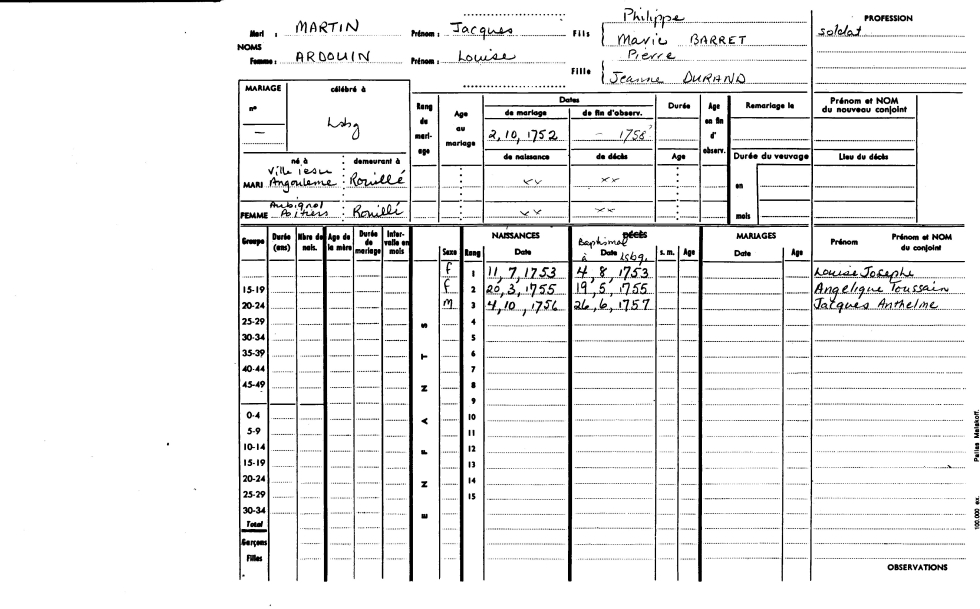 Mari : MARTIN Prénom : Jacques Fils { Philippe
Marie BARRET
PROFESSION
soldat
NOMS
Femme : ARDOUIN Prénom : Louise Fille { Pierre
Jeanne DURAND
MARIAGE célébré à
n° — Lsbg
Rang du mariage
Age au mariage
Dates
de mariage de fin d'observ.
2, 10, 1752 - 1758?
de naissance de décès
Durée
Age
Age en fin d'observ.
Remariage le
Durée du veuvage
en
mois
Prénom et NOM du nouveau conjoint
Lieu du décès
né à demeurant à
MARI Angouleme : Rouillé xx xx
FEMME Aubignol Poitiers : Rouillé xx xx
Groupe Durée (ans) Nbre de nais. Age de la mère Durée de mariage Intervalle en mois
ENFANTS
Sexe Rang NAISSANCES Date DÉCÈS Date s. m. Age MARIAGES Date Age Prénom Prénom et NOM du conjoint
Baptismal à Lsbg.
f 1 11, 7, 1753 4, 8, 1753 Louise Josephe
15-19 f 2 20, 3, 1755 19, 5, 1755 Angelique Toussain
20-24 m 3 4, 10, 1756 26, 6, 1757 Jacques Anthelme
25-29 4
30-34 5
35-39 6
40-44 7
45-49 8
9
0-4 10
5-9 11
10-14 12
15-19 13
20-24 14
25-29 15
30-34
Total
Garçons
Filles
OBSERVATIONS
100.000 ex. Pallas Malakoff.